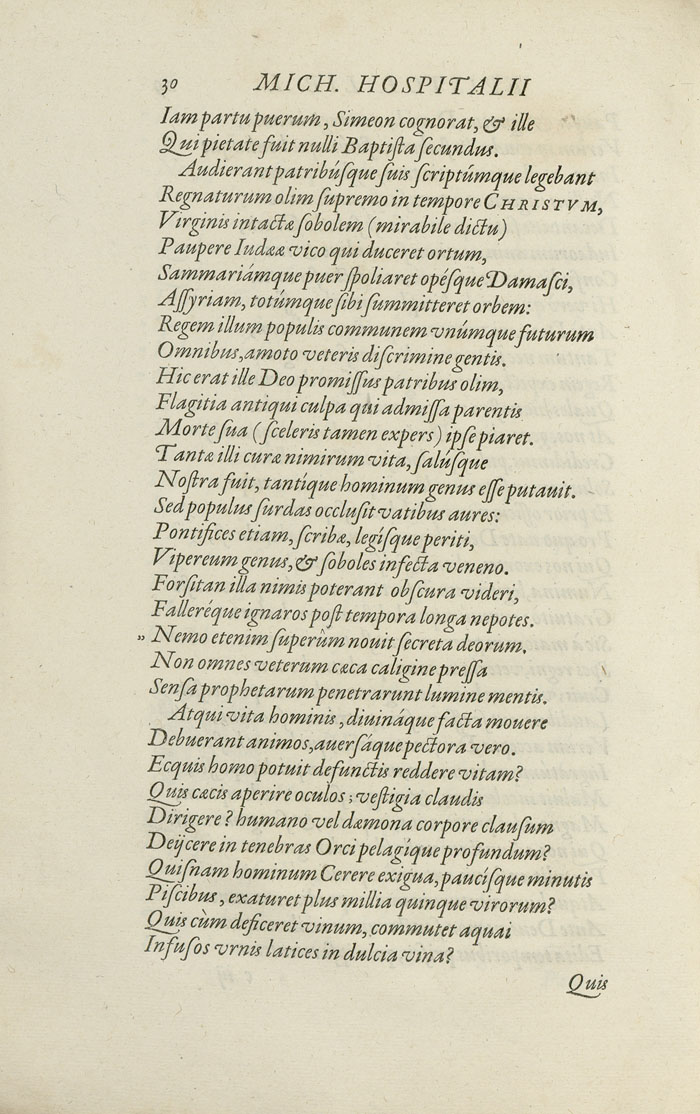 30 MICH. HOSPITALII
Iam partu puerum, Simeon cognorat, & ille
Qui pietate fuit nulli Baptiſta ſecundus.
Audierant patribúſque ſuis ſcriptúmque legebant
Regnaturum olim ſupremo in tempore CHRISTVM,
Virginis intactæ ſobolem (mirabile dictu)
Paupere Iudææ vico qui duceret ortum,
Sammariámque puer ſpoliaret opéſque Damaſci,
Aſſyriam, totúmque ſibi ſummitteret orbem:
Regem illum populis communem vnúmque futurum
Omnibus, amoto veteris diſcrimine gentis.
Hic erat ille Deo promiſſus patribus olim,
Flagitia antiqui culpa qui admiſſa parentis
Morte ſua (ſceleris tamen expers) ipſe piaret.
Tantæ illi curæ nimirum vita, ſalúſque
Noſtra fuit, tantíque hominum genus eſſe putauit.
Sed populus ſurdas occluſit vatibus aures:
Pontifices etiam, ſcribæ, legíſque periti,
Vipereum genus, & ſoboles infecta veneno.
Forſitan illa nimis poterant obſcura videri,
Falleréque ignaros poſt tempora longa nepotes.
„ Nemo etenim ſuperùm nouit ſecreta deorum.
Non omnes veterum cæca caligine preſſa
Senſa prophetarum penetrarunt lumine mentis.
Atqui vita hominis, diuináque facta mouere
Debuerant animos, auerſáque pectora vero.
Ecquis homo potuit defunctis reddere vitam?
Quis cæcis aperire oculos; veſtigia claudis
Dirigere? humano vel dæmona corpore clauſum
Deijcere in tenebras Orci pelagíque profundum?
Quiſnam hominum Cerere exigua, paucíſque minutis
Piſcibus, exaturet plus millia quinque virorum?
Quis cùm deficeret vinum, commutet aquai
Infuſos vrnis latices in dulcia vina?
Quis